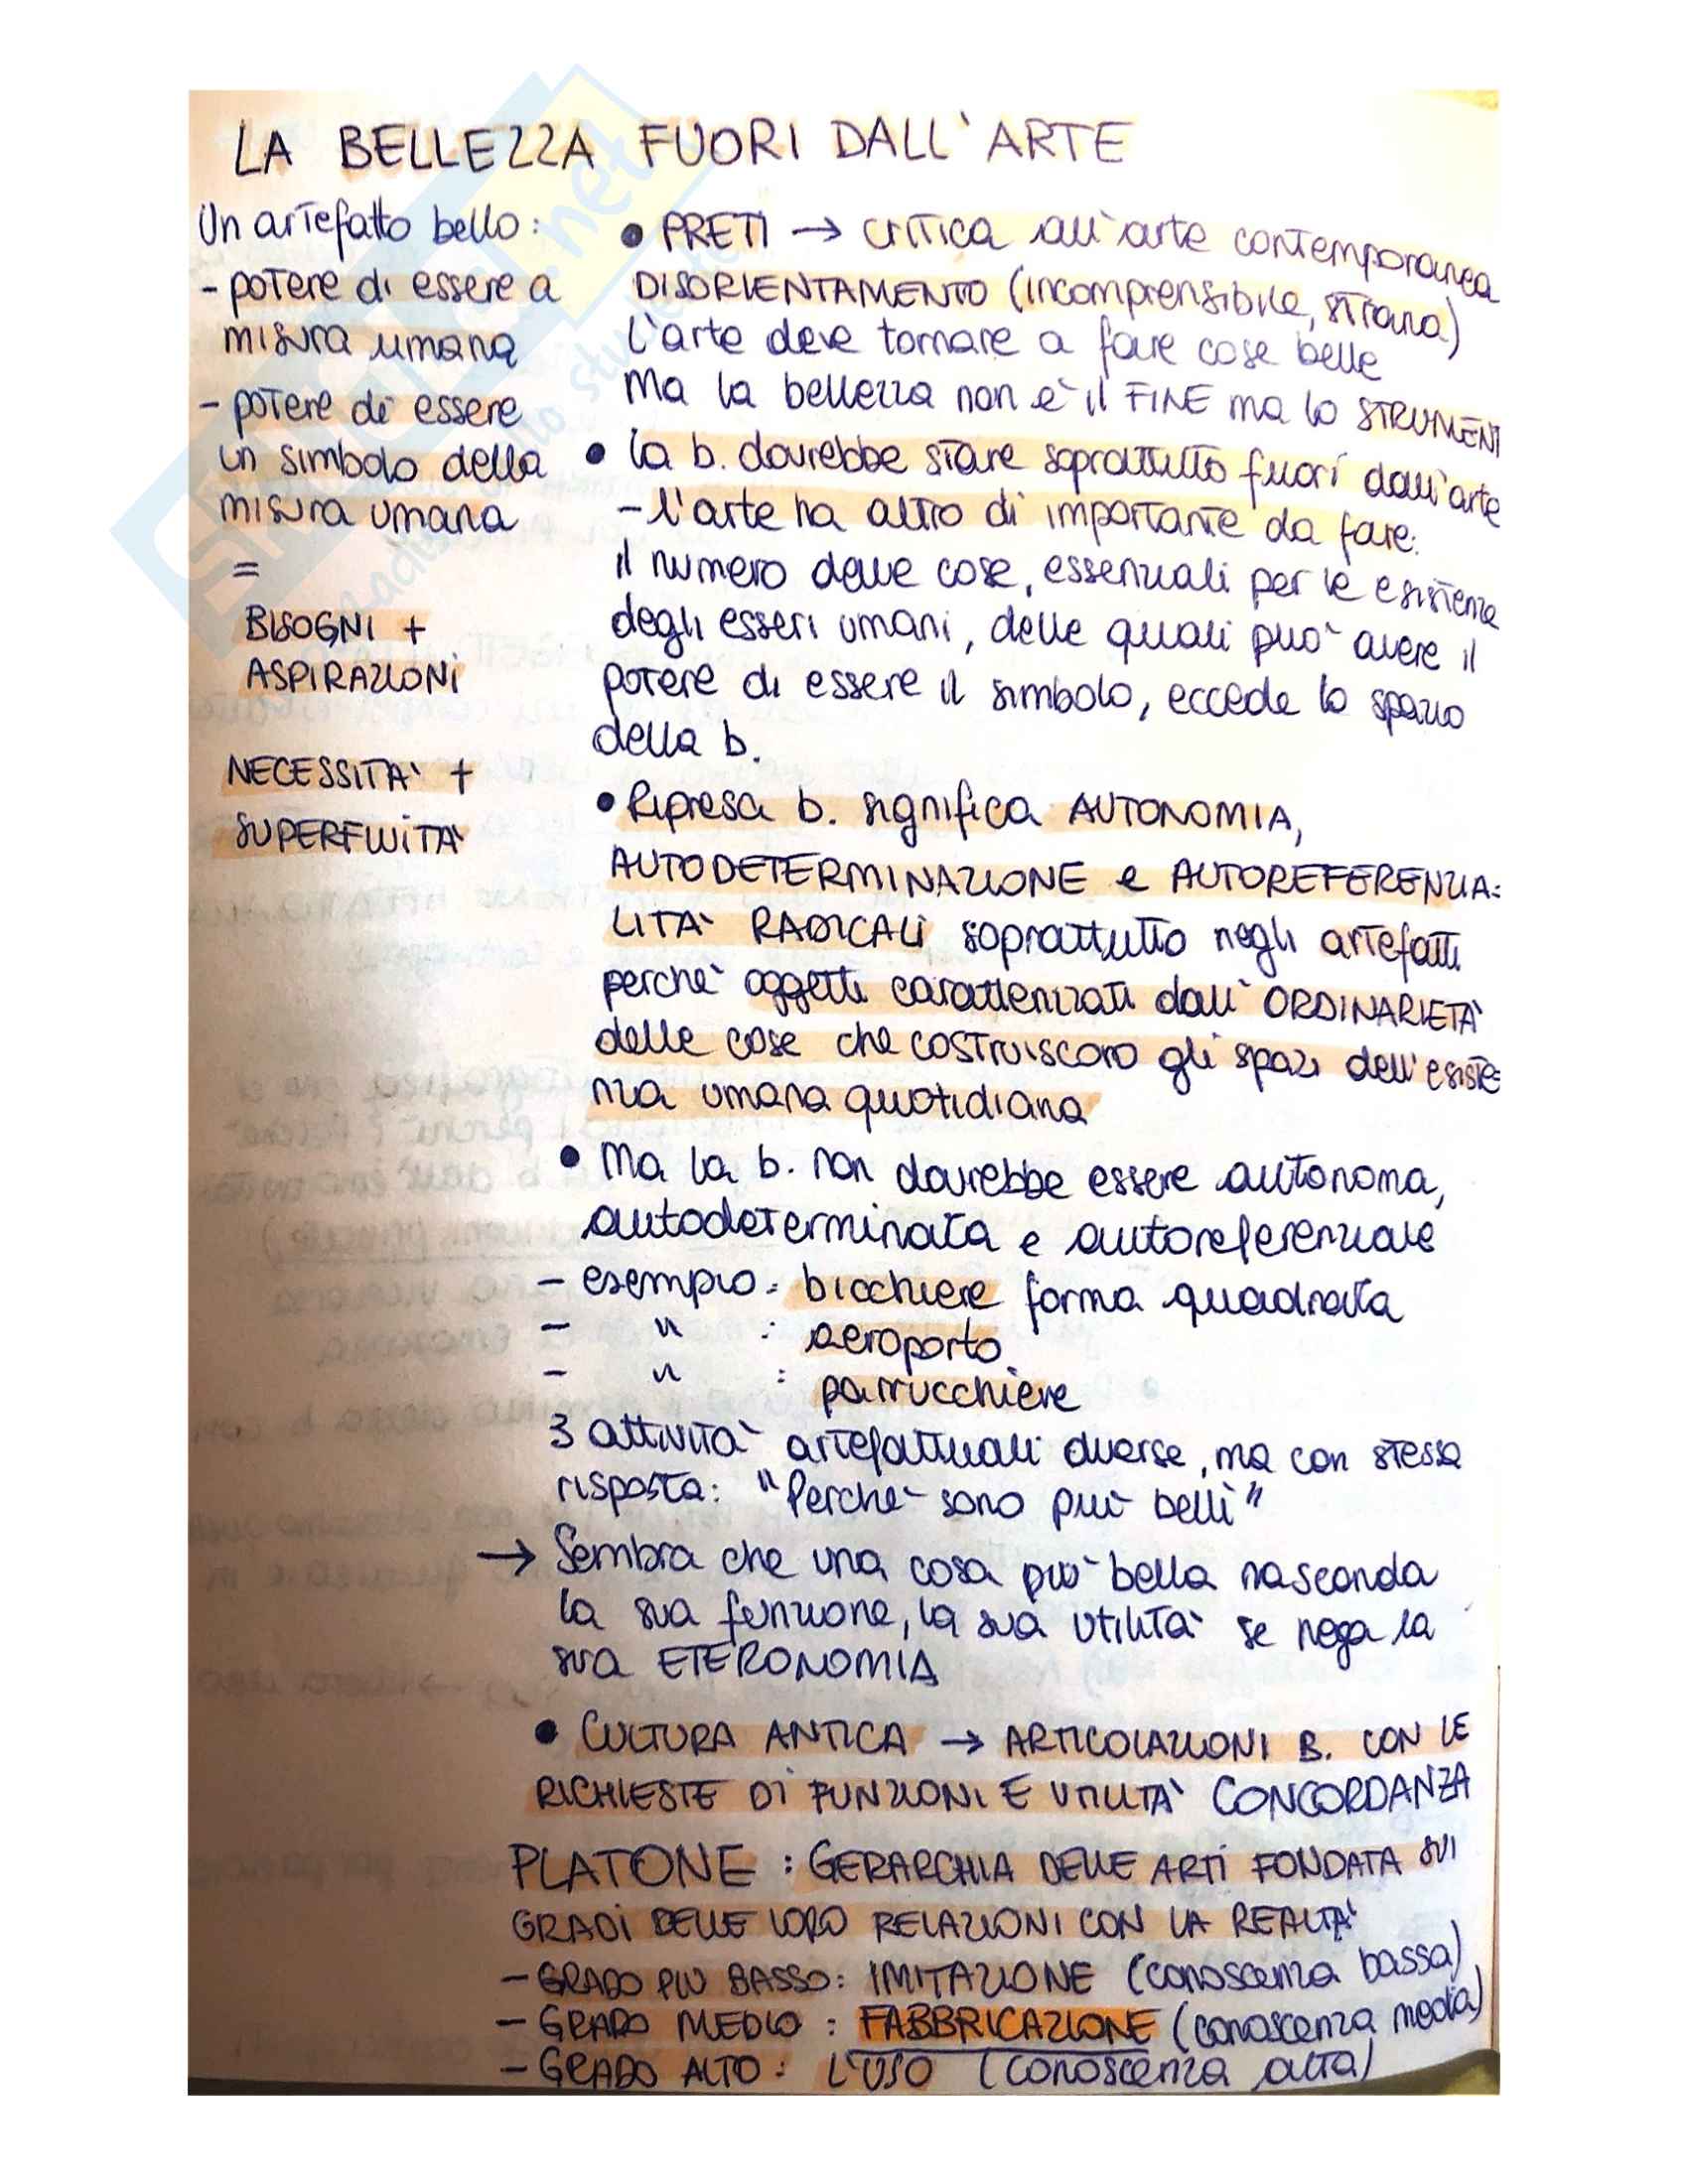 LA BELLEZZA FUORI DALL'ARTE
Un artefatto bello:
- potere di essere a
misura umana
- potere di essere
un simbolo della
misura umana
=
BISOGNI +
ASPIRAZIONI
NECESSITA' +
SUPERFLUITA'
• PRETI → critica all'arte contemporanea
DISORIENTAMENTO (incomprensibile, strana)
l'arte deve tornare a fare cose belle
Ma la bellezza non è il FINE ma lo STRUMENT
• la b. dovrebbe stare soprattutto fuori dall'arte
- l'arte ha altro di importante da fare:
il numero delle cose, essenziali per le esistenze
degli esseri umani, delle quali può avere il
potere di essere il simbolo, eccede lo spazio
della b.
• Ripresa b. significa AUTONOMIA,
AUTODETERMINAZIONE e AUTOREFERENZIA=
LITA' RADICALI soprattutto negli artefatti
perchè oggetti caratterizzati dall'ORDINARIETA'
delle cose che costruiscono gli spazi dell'esiste=
nza umana quotidiana
• Ma la b. non dovrebbe essere autonoma,
autodeterminata e autoreferenziale
- esempio: bicchiere forma quadrata
- " : aeroporto
- " : parrucchiere
3 attività artefattuali diverse, ma con stessa
risposta: "Perchè sono più belli"
→ Sembra che una cosa più bella nasconda
la sua funzione, la sua utilità se nega la
sua ETERONOMIA
• CULTURA ANTICA → ARTICOLAZIONI B. CON LE
RICHIESTE DI FUNZIONI E UTILITA' CONCORDANZA
PLATONE : GERARCHIA DELLE ARTI FONDATA SUI
GRADI DELLE LORO RELAZIONI CON LA REALTA'
- GRADO PIU BASSO: IMITAZIONE (conoscenza bassa)
- GRADO MEDIO : FABBRICAZIONE (conoscenza media)
- GRADO ALTO : L'USO (conoscenza alta)